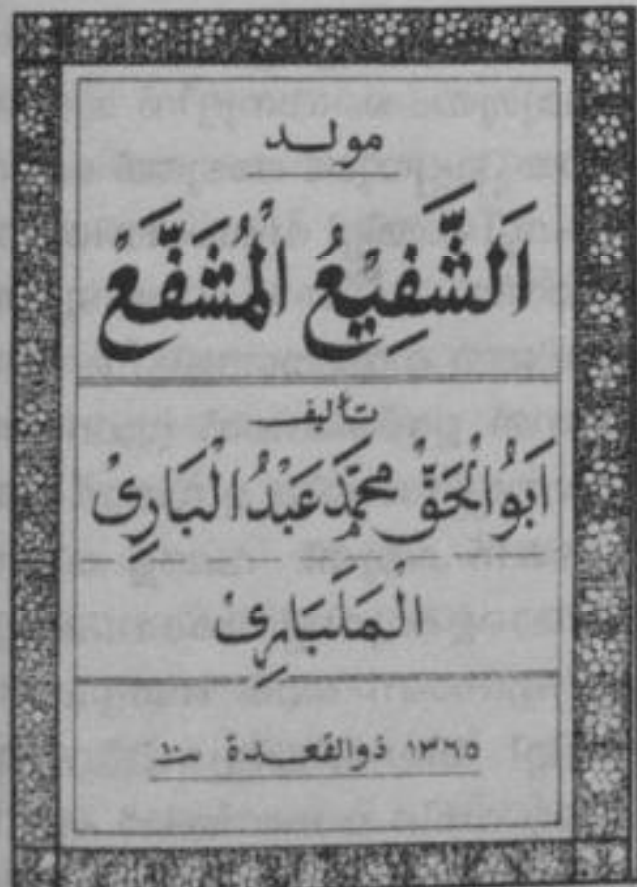 مولد
اَلشَّفِيْعُ الْمُشَفَّعْ
تأليف
اَبُو الْحَقّْ مُحَمَّدْ عَبْدُ الْبَارِىْ
الْمَلَبَارِىْ
١٣٦٥ ذوالقعدة ١٠